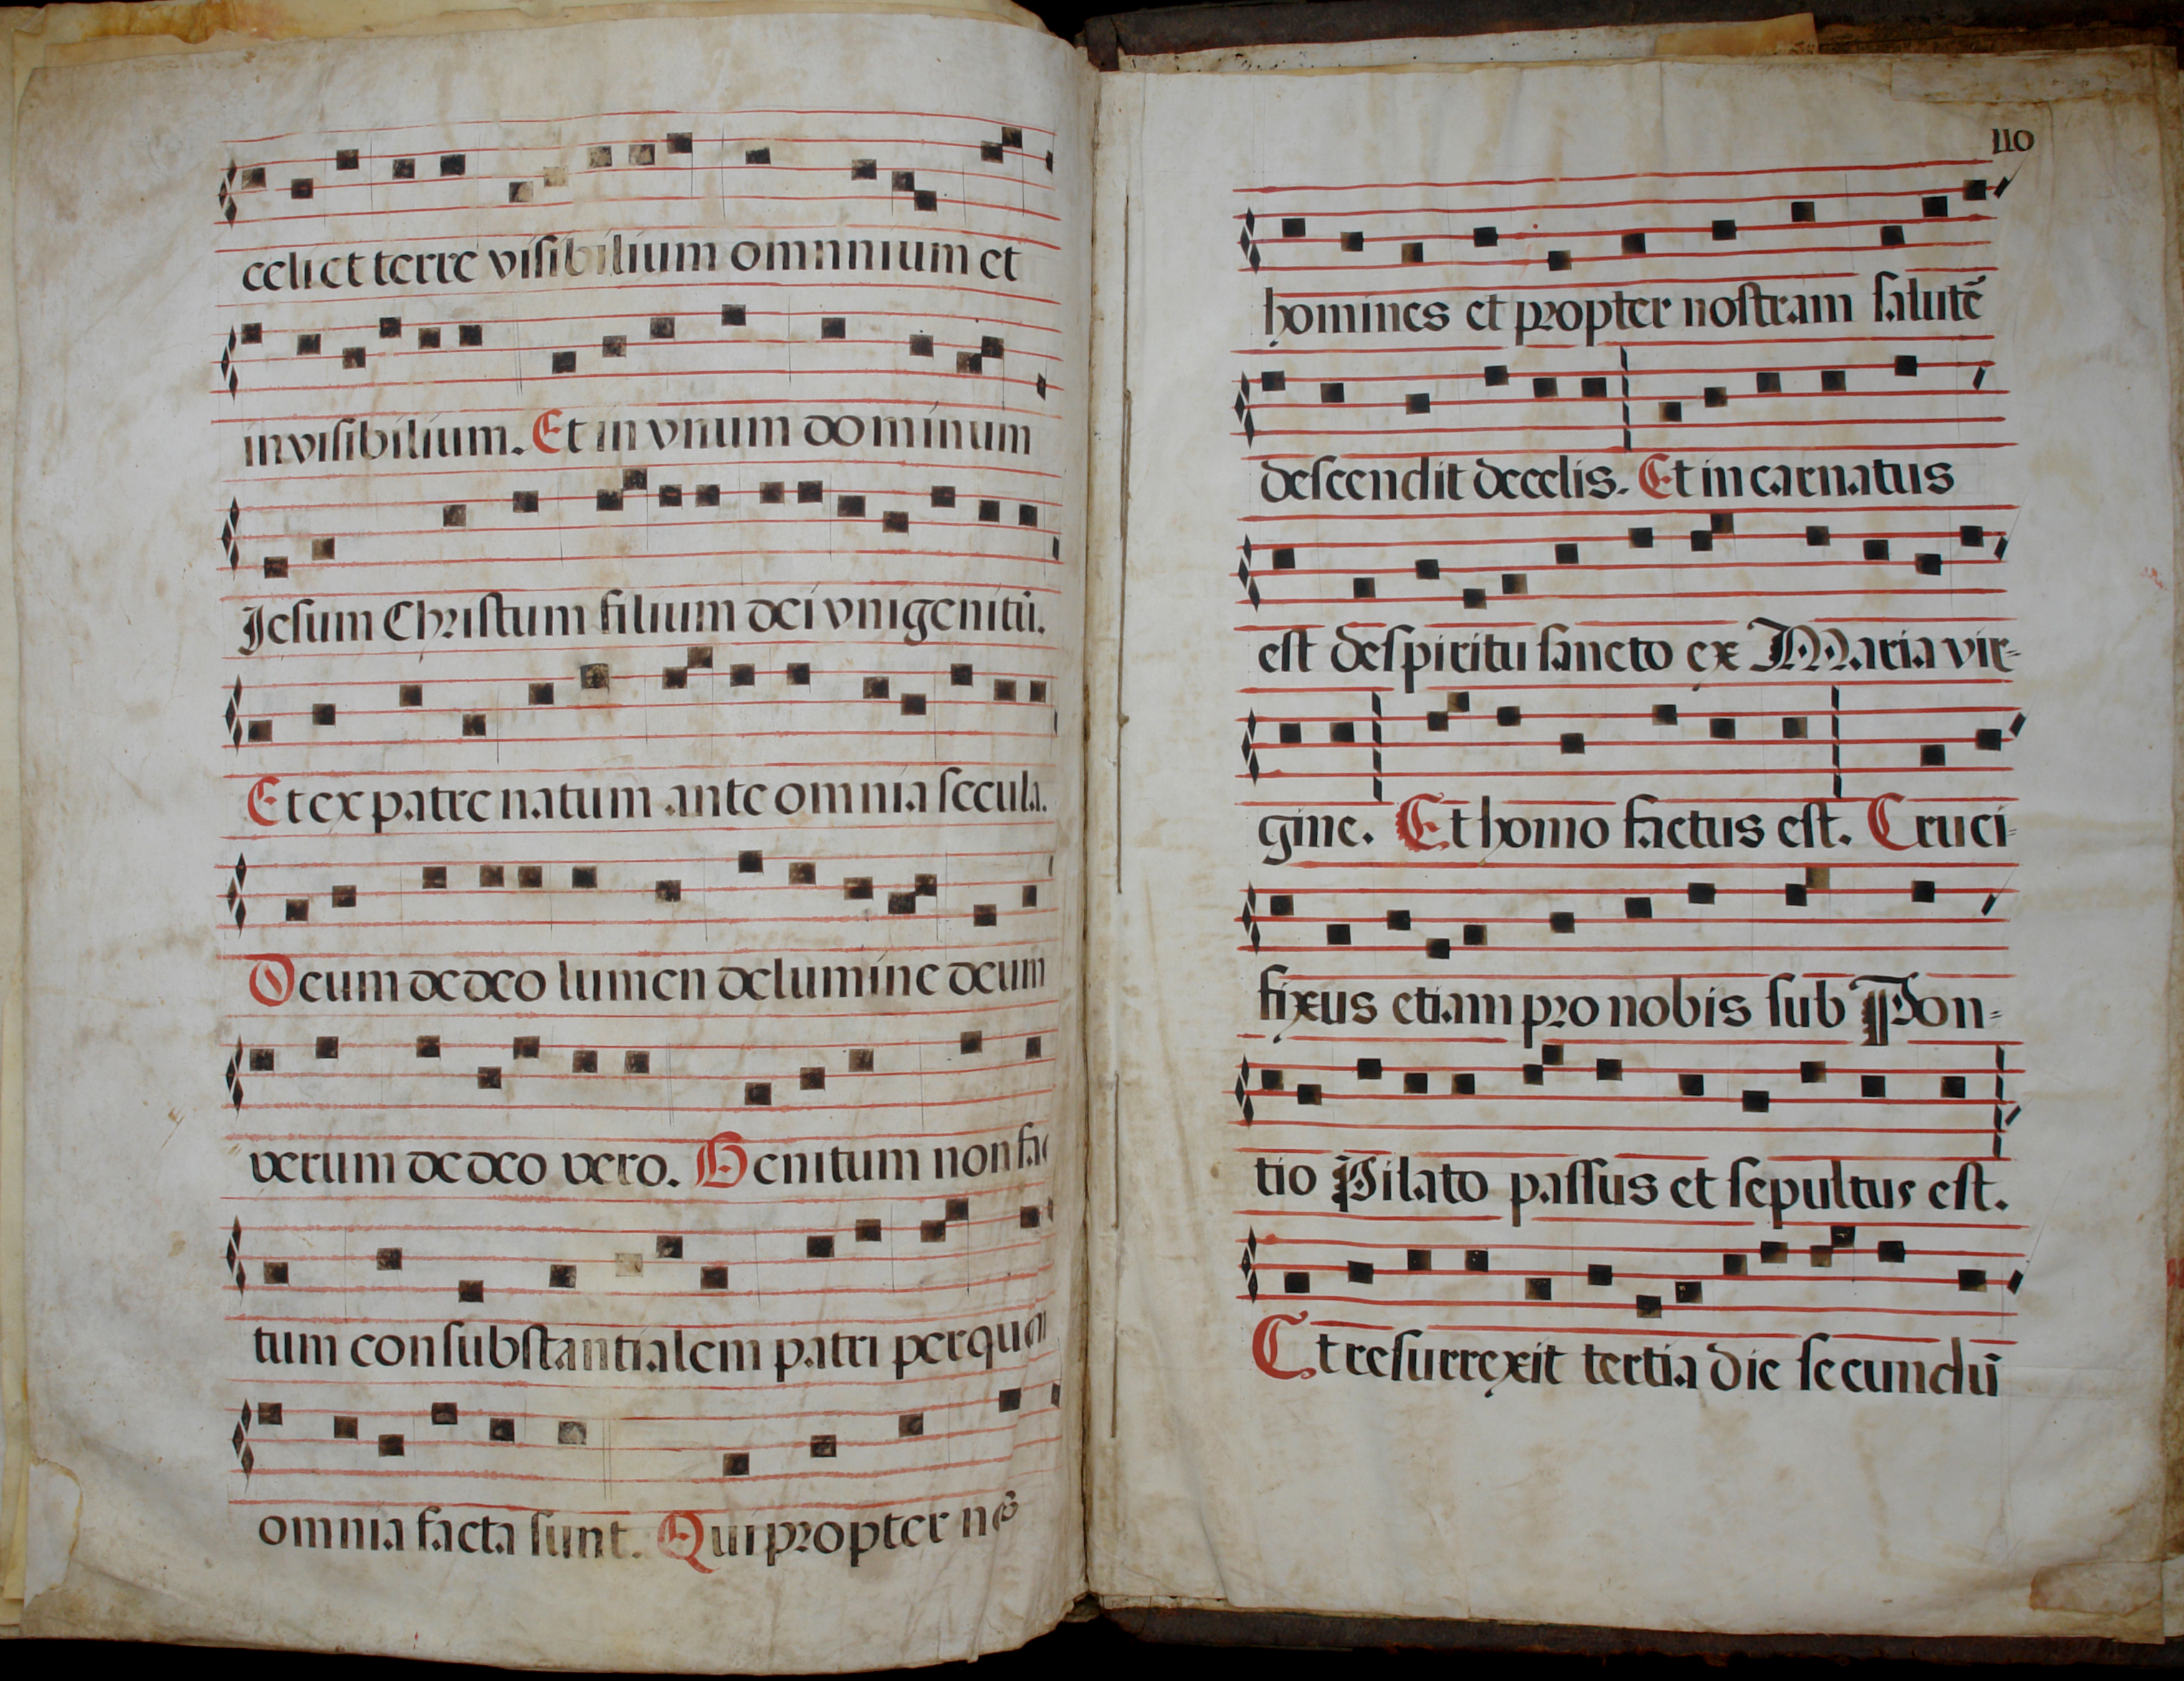 celi et terre visibilium omnnium et
invisibilium. Et in vnum dominum
Jesum Christum filium dei vnigenitū.
Et ex patre natum ante omnia secula.
Deum de deo lumen de lumine deum
verum de deo vero. Genitum non fac
tum consubstantialem patri per quem
omnia facta sunt. Qui propter nos
110
homines et propter nostram salutē
descendit de celis. Et incarnatus
est de spiritu sancto ex Maria vir-
gine. Et homo factus est. Cruci-
fixus etiam pro nobis sub Pon-
tio Pilato passus et sepultus est.
Et resurrexit tertia die secundū